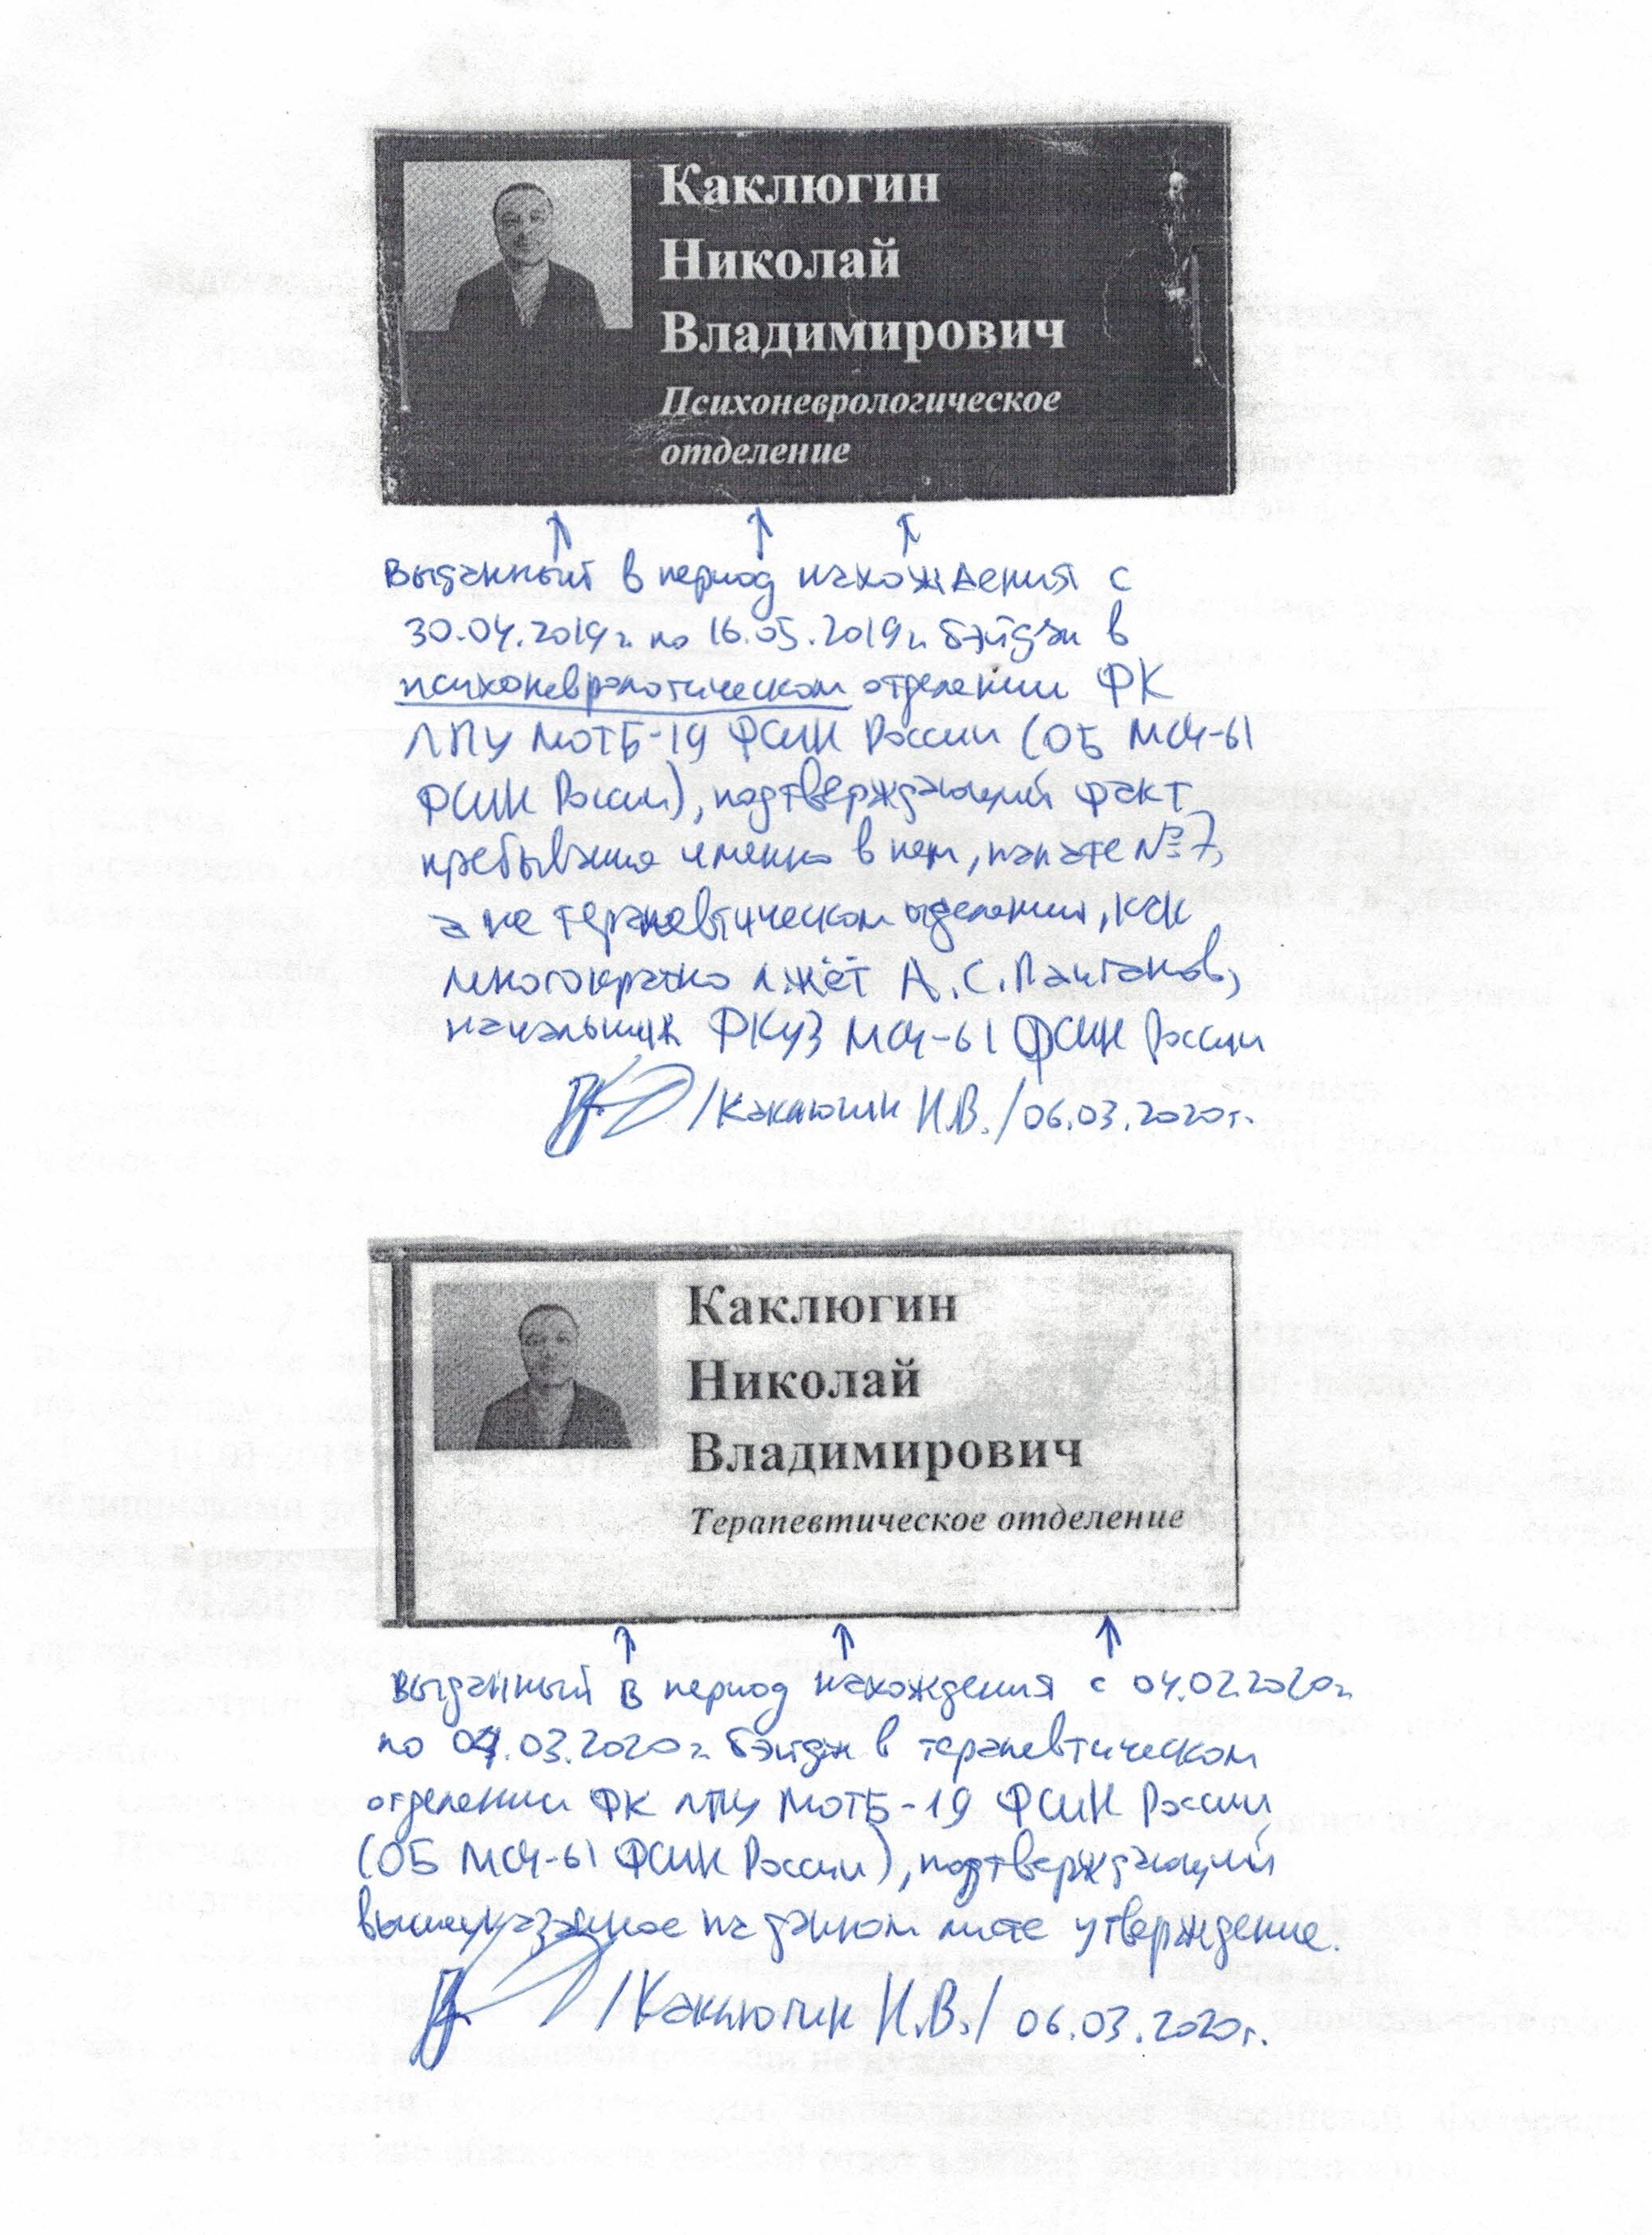 Каклюгин
Николай
Владимирович
Психоневрологическое
отделение
Выданный в период нахождения с
30.04.2019г. по 16.05.2019г. бэйдж в
психоневрологическом отделении ФК
ЛПУ МОТБ-19 ФСИН России (ОБ МСЧ-61
ФСИН России), подтверждающий факт
пребывания именно в нем, палате №7,
а не терапевтическом отделении, как
многократно лжёт А.С.
начальник ФКУЗ МСЧ-61 ФСИН России
/Каклюгин Н.В./06.03.2020г.
Каклюгин
Николай
Владимирович
Терапевтическое отделение
Выданный в период нахождения с 04.02.2020г.
по 03.2020г. бэйдж в терапевтическом
отделении ФК ЛПУ МОТБ-19 ФСИН России
(ОБ МСЧ-61 ФСИН России), подтверждающий
вышеуказанное на данном листе утверждение.
/Каклюгин Н.В./ 06.03.2020г.